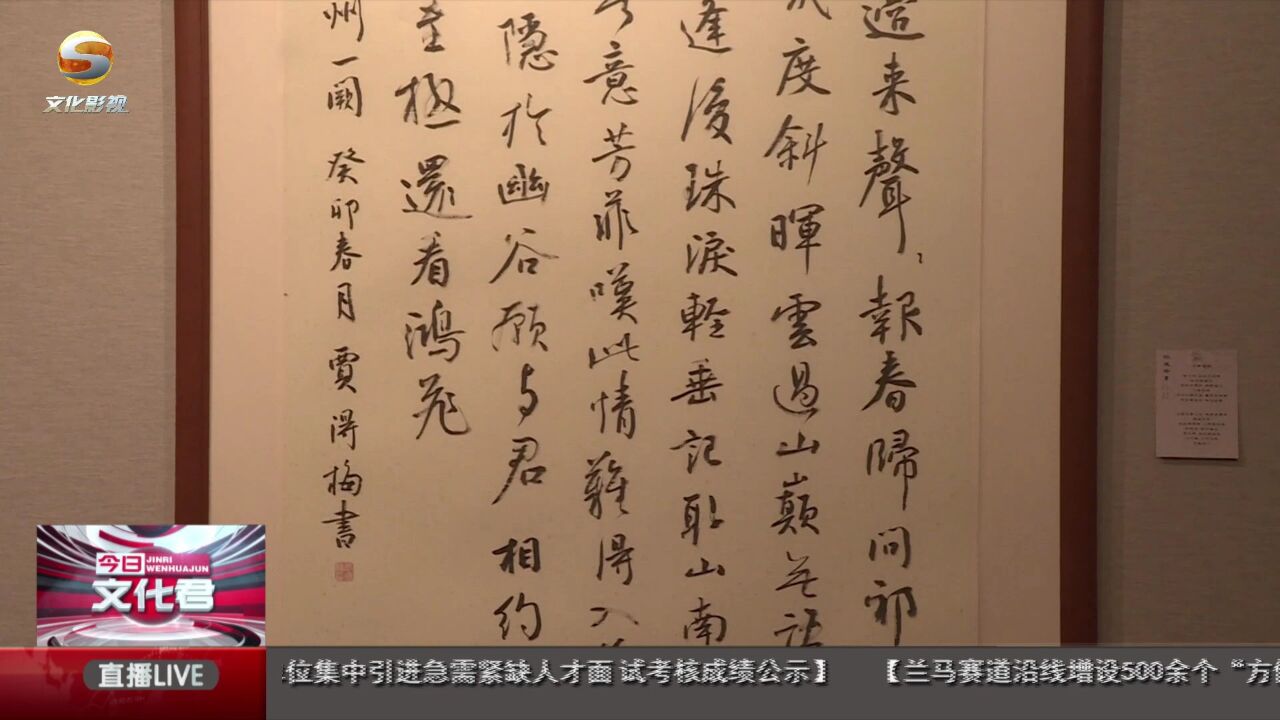 文化影视
過来聲聲報春歸問祁
度斜暉雲過山巔無語
逢後珠淚輕垂記取山南
意芳菲嘆此情難得入
隱於幽谷願与君相約
還看鴻飛
州一闋 癸卯春月賈得梅書
今日
JINRI
WENHUAJUN
文化君
直播LIVE
位集中引进急需紧缺人才面 试考核成绩公示】 【兰马赛道沿线增设500余个“方